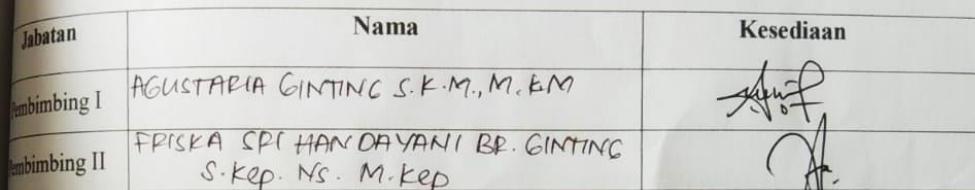 Jabatan Nama Kesediaan
Pembimbing I AGUSTARIA GINTING S.K.M., M.KM
Pembimbing II FRISKA SRI HANDAYANI BR. GINTING
S.Kep. Ns. M.Kep